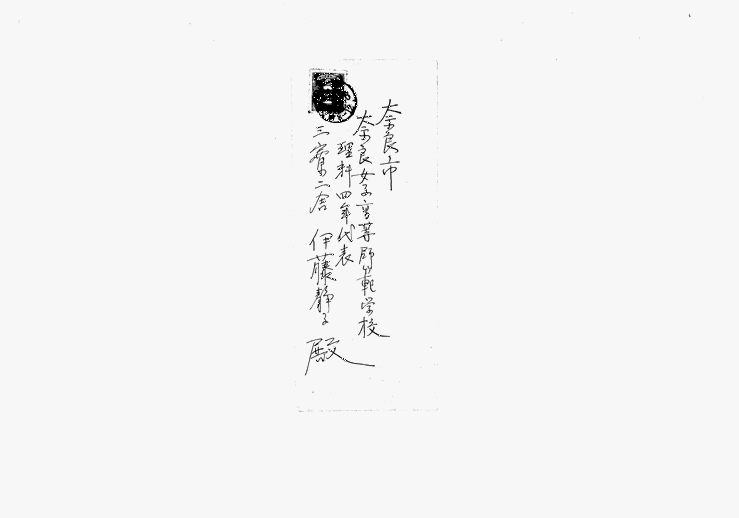 奈良市
奈良女子高等師範学校
理科四年代表
三寮二舎 伊藤静子 殿